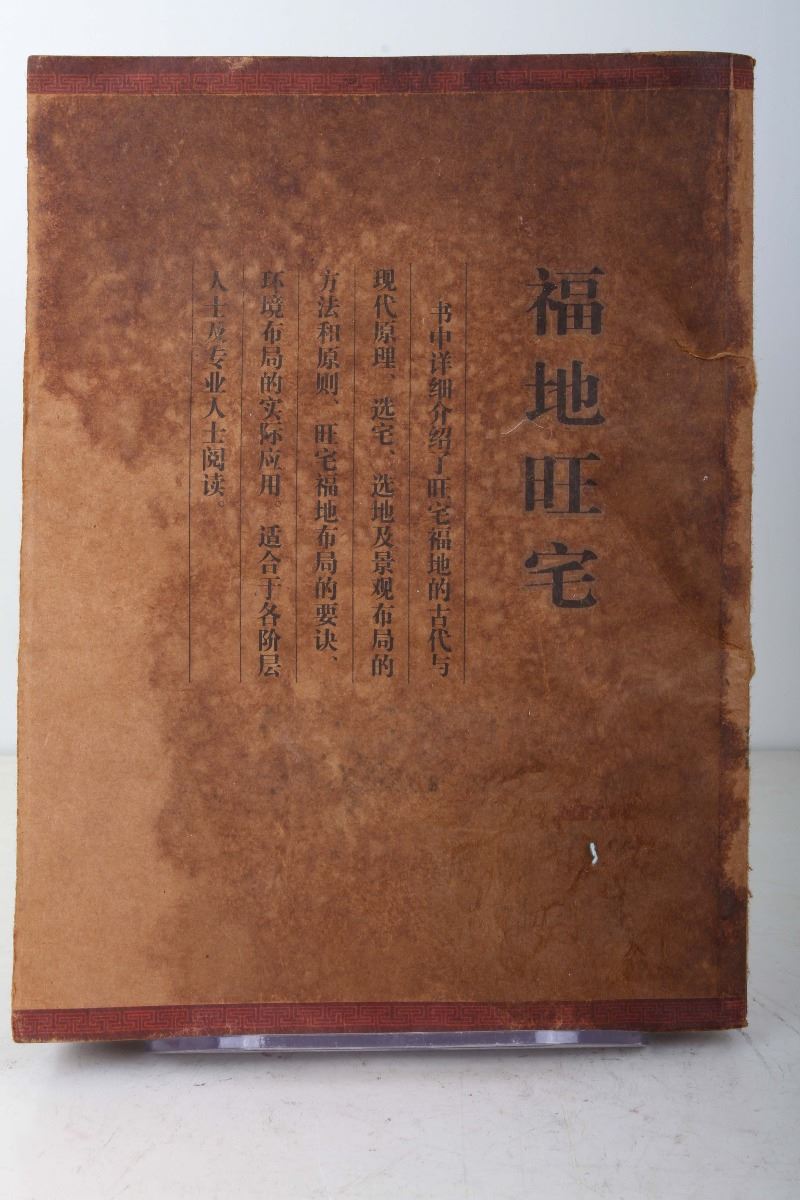 福地旺宅
书中详细介绍了旺宅福地的古代与
现代原理、选宅、选地及景观布局的
方法和原则、旺宅福地布局的要诀、
环境布局的实际应用。适合于各阶层
人士及专业人士阅读。